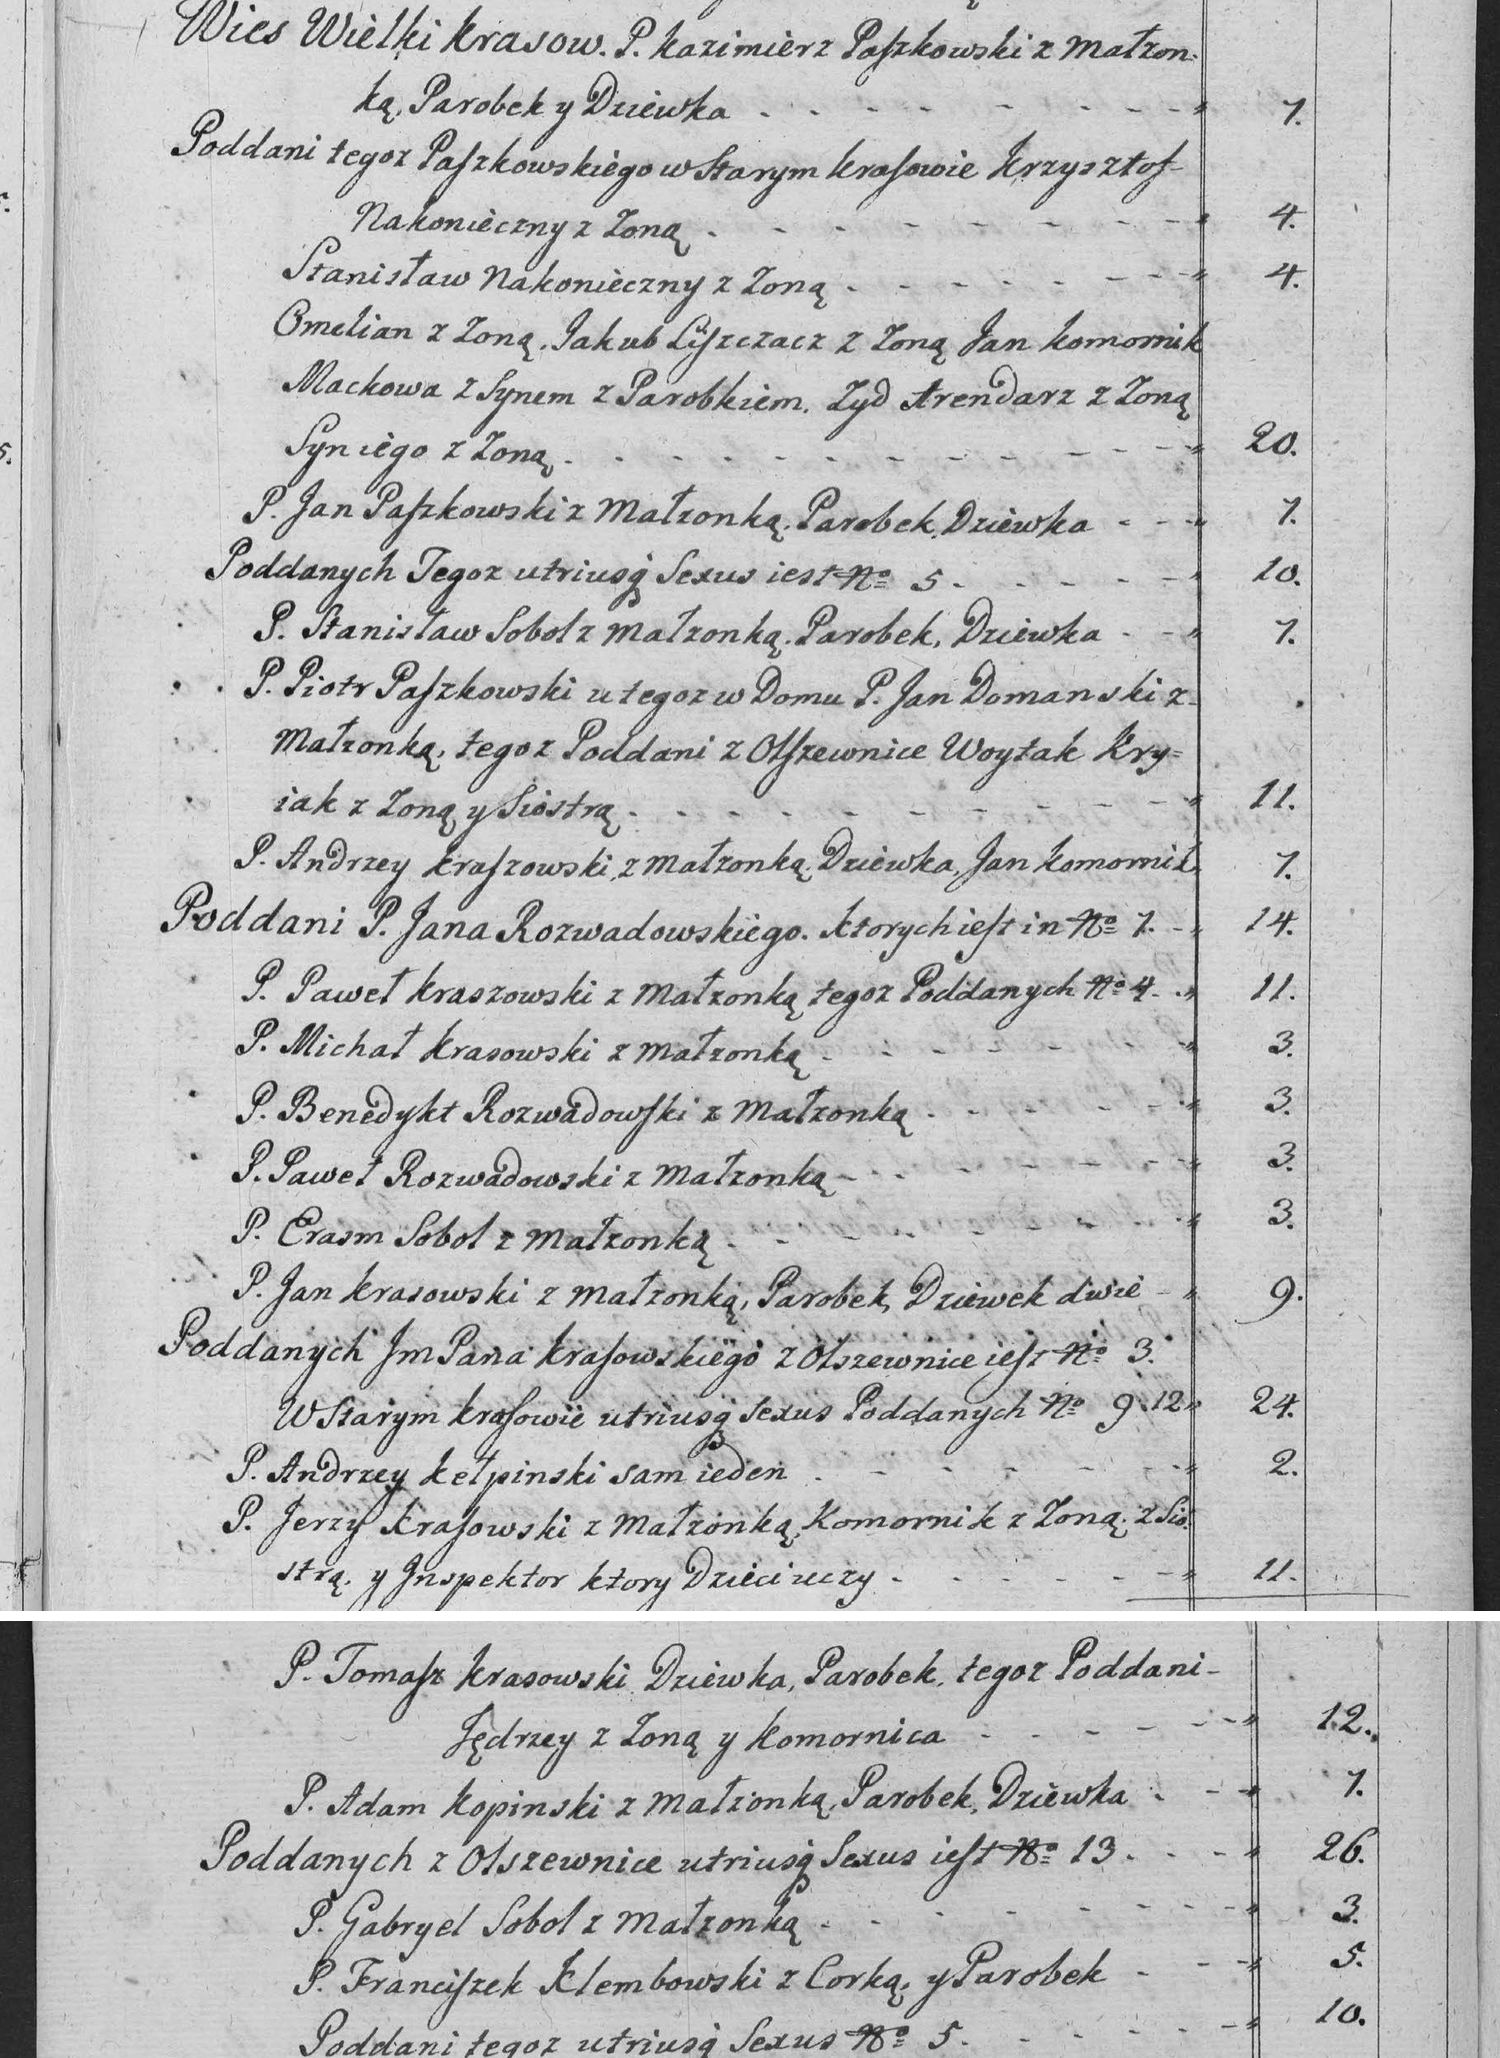 Wies Wielki Krasow. P. Kazimierz Paszkowski z Małzon:
ką, Parobek y Dziewka . - - - - - - - - " 7.
Poddani tegoz Paszkowskiego w Starym Krasowie Krzysztof-
Nakonieczny z Zoną . - - - - - - - " 4.
Stanisław Nakonieczny z Zoną . - - - - - - " 4.
Omelian z Zoną, Jakub Liszczacz z Zoną Jan Komornik
Mackowa z Synem z Parobkiem. Zyd Arendarz z Zoną
Syn iego z Zoną . - - - - - - - - - " 20.
P. Jan Paszkowski z Małzonką. Parobek, Dziewka - - - " 7.
Poddanych Tegoz utriusq Sexus iest No 5 . - - - - " 10.
P. Stanisław Sobol z Małzonką. Parobek, Dziewka - - " 7.
P. Piotr Paszkowski u tegoz w Domu P. Jan Domanski z-
Małzonką, tegoz Poddani z Olszewnice Woytak Kry=
iak z Zoną y Siostrą . - - - - - - - - " 11.
P. Andrzey Kraszowski, z Małzonką, Dziewka, Jan Komornik 7.
Poddani P. Jana Rozwadowskiego. ktorych iest in No 7. - " 14.
P. Paweł Kraszowski z Małzonką tegoz Poddanych No 4. - " 11.
P. Michał Krasowski z Małzonką - - - - - - - " 3.
P. Benedykt Rozwadowski z Małzonką . - - - - - " 3.
P. Paweł Rozwadowski z Małzonką - - - - - - - " 3.
P. Erasm Sobol z Małzonką . - - - - - - - " 3.
P. Jan Krasowski z Małzonką, Parobek, Dziewek dwie - " 9.
Poddanych Jm Pana Krasowskiego z Olszewnice iest No 3.
W Starym Krasowie utriusq Sexus Poddanych No 9. 12 " 24.
P. Andrzey Kełpinski sam ieden . - - - - - - " 2.
P. Jerzy Krasowski z Małzonką, Komornik z Zoną. z Sio:
strą. y Inspektor ktory Dzieci uczy . - - - - - " 11.
P. Tomasz Krasowski Dziewka, Parobek, tegoz Poddani-
Jędrzey z Zoną y Komornica - - - - - - " 12.
P. Adam Kopinski z Małzonką, Parobek, Dziewka . - - " 7.
Poddanych z Olszewnice utriusq Sexus iest No 13 . - - - " 26.
P. Gabryel Sobol z Małzonką . - - - - - - - " 3.
P. Franciszek Klembowski z Corką, y Parobek - - - " 5.
Poddani tegoz utriusq Sexus No 5. - - - - - " 10.